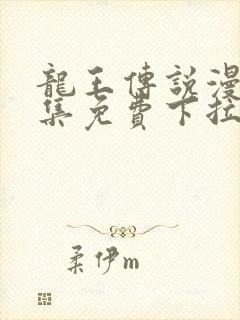 龍王傳說漫
集免費下拉
柔伊m